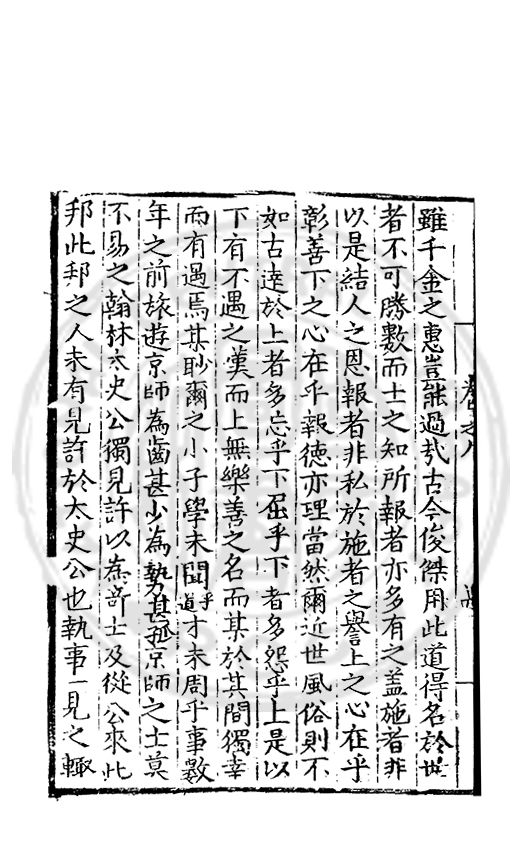 雖千金之惠豈能過哉古今俊傑用此道得名於世
者不可勝數而士之知所報者亦多有之蓋施者非
以是結人之恩報者非私於施者之譽上之心在乎
彰善下之心在乎報德亦理當然爾近世風俗則不
如古達於上者多忘乎下屈乎下者多怨乎上是以
下有不遇之羙而上無樂善之名而某於其間獨幸
而有遇焉某眇爾之小子學未聞乎道才未周乎事數
年之前旅遊京師為齒甚少為勢甚孤京師之士莫
不易之翰林太史公獨見許以為竒士及從公來此
邦此邦之人未有見許於太史公也執事一見之輙
卷之八